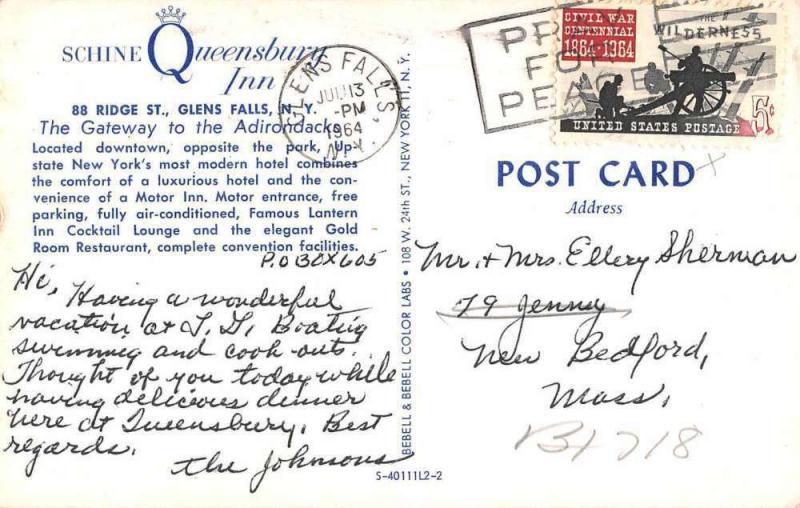 SCHINE Queensbury
Inn
88 RIDGE ST., GLENS FALLS, N. Y.
The Gateway to the Adirondacks
Located downtown, opposite the park, Up-
state New York's most modern hotel combines
the comfort of a luxurious hotel and the con-
venience of a Motor Inn. Motor entrance, free
parking, fully air-conditioned, Famous Lantern
Inn Cocktail Lounge and the elegant Gold
Room Restaurant, complete convention facilities.
P.O BOX 605
Hi,
Having a wonderful
vacation at L. G. Boating
swimming and cook outs.
Thought of you today while
having delicious dinner
here at Queensbury. Best
regards.
the Johnsons
GLENS FALLS,
JUL 13
-PM
1964
N.Y.
BEBELL & BEBELL COLOR LABS • 108 W. 24th ST., NEW YORK 11, N. Y.
S-40111L2-2
PRAY
FOR
PEACE
CIVIL WAR
CENTENNIAL
1864-1964
THE
WILDERNESS
UNITED STATES POSTAGE 5¢
POST CARD
Address
Mr. + Mrs. Ellery Sherman
79 Jenny
New Bedford,
Mass.